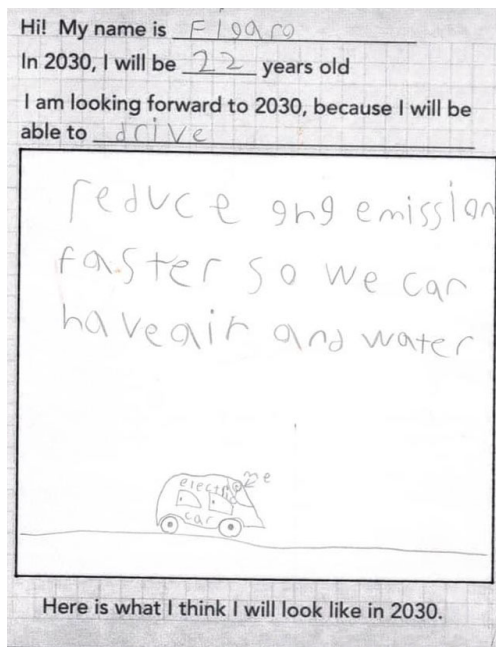 Hi! My name is Figaro
In 2030, I will be 22 years old
I am looking forward to 2030, because I will be
able to drive
reduce ghg emission
faster so we can
have air and water
electric
car
Here is what I think I will look like in 2030.